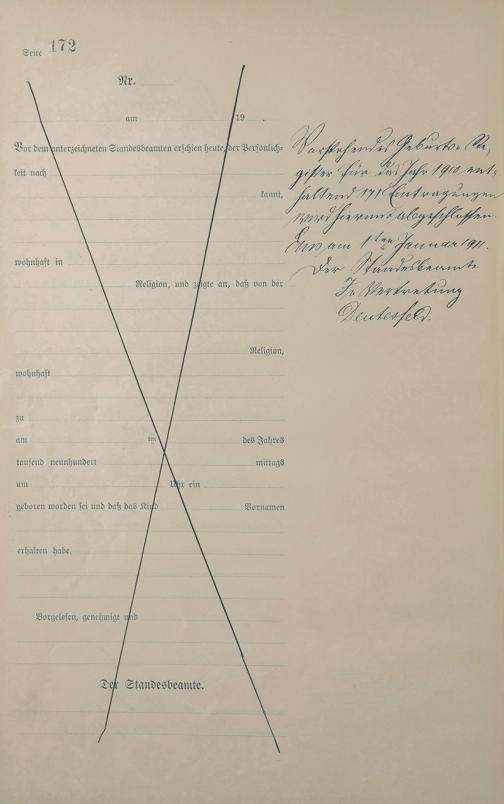 Seite 172
Nr.
am 19
Vor dem unterzeichneten Standesbeamten erschien heute, der Persönlich-
keit nach
kannt,
wohnhaft in
Religion, und zeigte an, daß von der
Religion,
wohnhaft
zu
am ten des Jahres
tausend neunhundert mittags
um Uhr ein
geboren worden sei und daß das Kind Vornamen
erhalten habe.
Vorgelesen, genehmigt und
Der Standesbeamte.
Vorstehendes Geburts-Re-
gister für das Jahr 1910 ent-
haltend 171 Eintragungen
wird hiermit abgeschlossen.
am 1ten Januar 1911.
Der Standesbeamte
In Vertretung